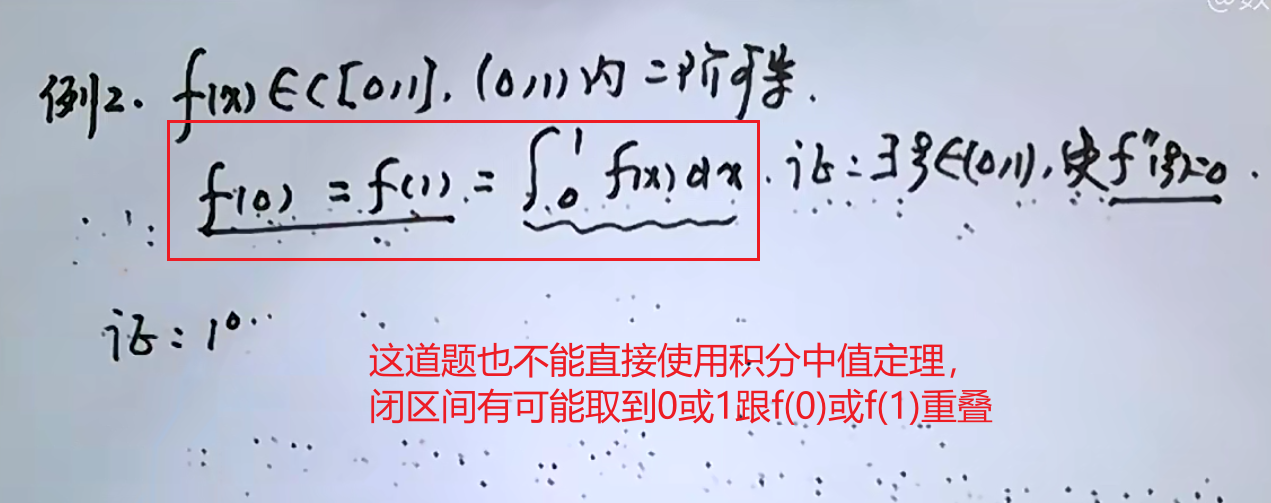 例2. f(x)∈C[0,1], (0,1)内二阶可导.
f(0) = f(1) = ∫₀¹ f(x)dx. 证:∃ξ∈(0,1),使f"(ξ)=0.
证:1°
这道题也不能直接使用积分中值定理，
闭区间有可能取到0或1跟f(0)或f(1)重叠